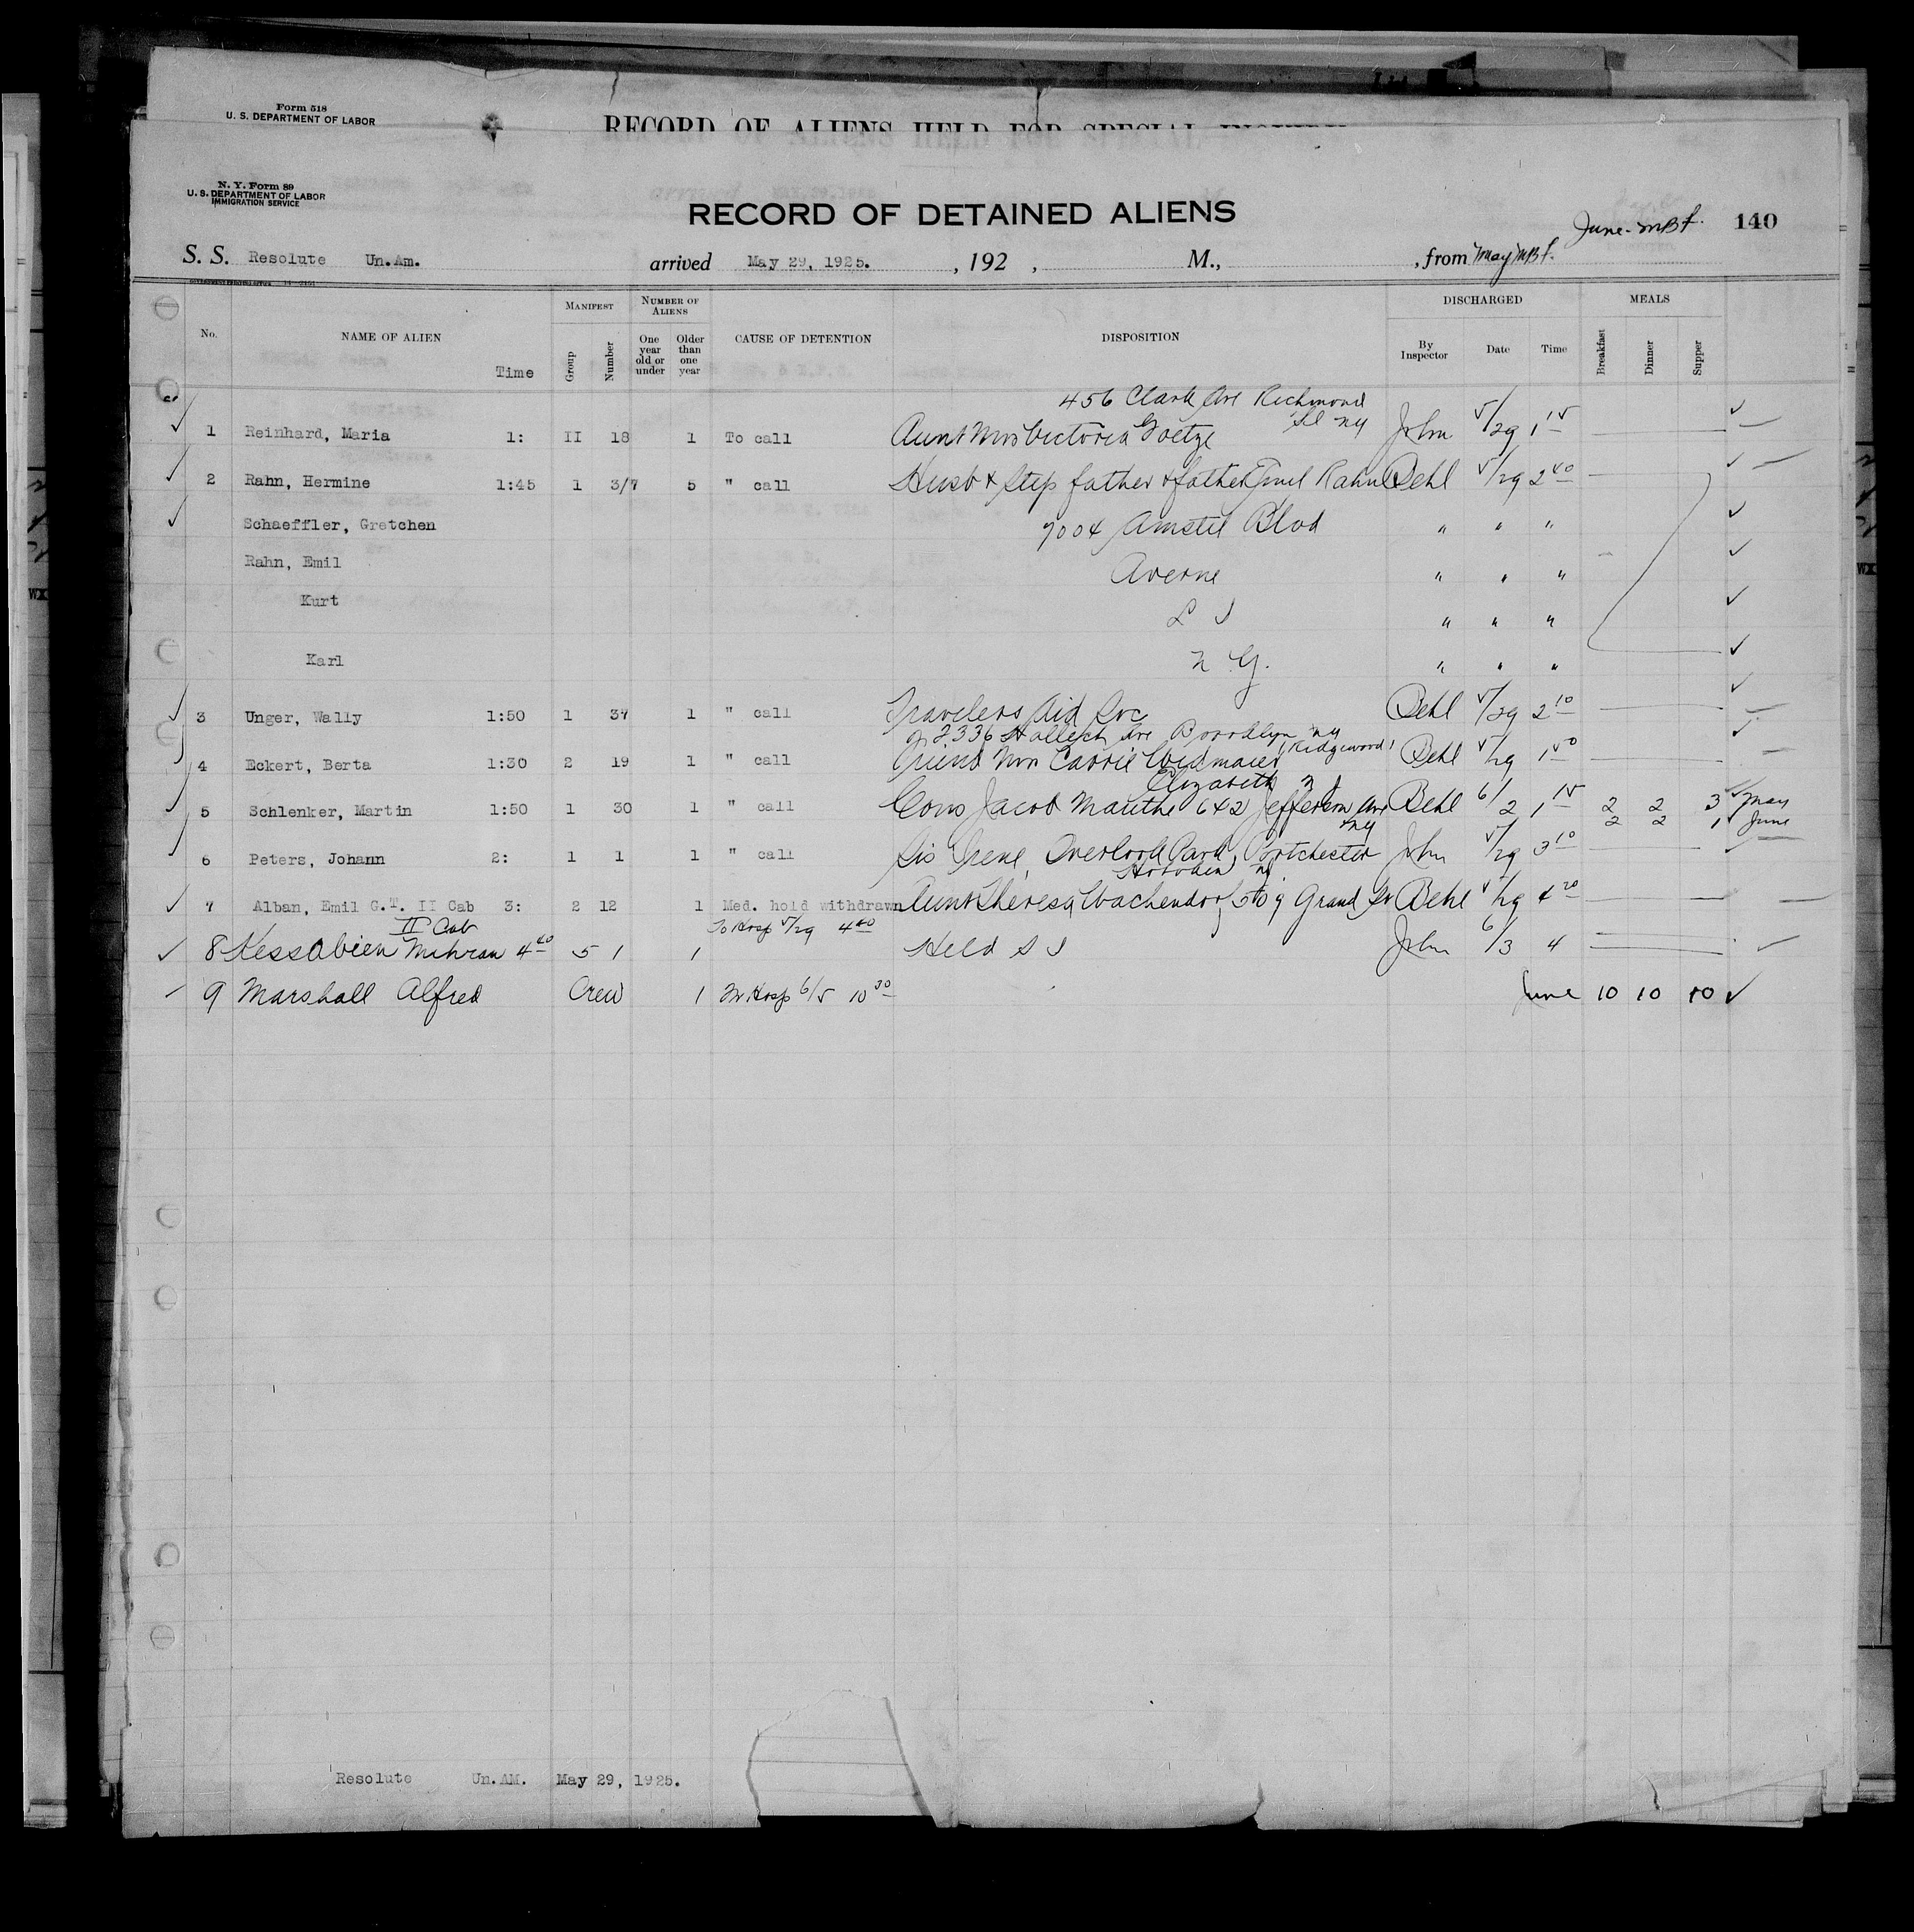 Form 518
U. S. DEPARTMENT OF LABOR
RECORD OF ALIENS HELD FOR SPECIAL INQUIRY
N. Y. Form 89
U. S. DEPARTMENT OF LABOR
IMMIGRATION SERVICE
RECORD OF DETAINED ALIENS
June - MBF. 140
S. S. Resolute Un.Am. arrived May 29, 1925. , 192 , M., , from May MBF.
MANIFEST NUMBER OF ALIENS DISCHARGED MEALS
No. NAME OF ALIEN Time Group Number One year old or under Older than one year CAUSE OF DETENTION DISPOSITION By Inspector Date Time Breakfast Dinner Supper
456 Clark Ave Richmond
1 Reinhard, Maria 1: II 18 1 To call Aunt Mrs Victoria Goetze John 5/29 1 15
2 Rahn, Hermine 1:45 1 3/7 5 " call Husb & Step father & father Emil Rahn Behl 5/29 2 40
Schaeffler, Gretchen 7004 Amstel Blvd " " "
Rahn, Emil Averne " " "
Kurt L I " " "
Karl N Y. " " "
3 Unger, Wally 1:50 1 37 1 " call Travelers Aid Soc Behl 5/29 2 10
2336 Halleck Ave Brooklyn NY
4 Eckert, Berta 1:30 2 19 1 " call Friend Mrs Carrie Widmaier (Ridgewood) Behl 5/29 1 50
Elizabeth N J
5 Schlenker, Martin 1:50 1 30 1 " call Cous Jacob Mauthe 642 Jefferson Ave Behl 6/2 1 15 2 2 3 May
2 2 1 June
NY
6 Peters, Johann 2: 1 1 1 " call Sis Irene, Overlook Park, Portchester John 5/29 3 10
Hoboken NJ
7 Alban, Emil G.T. II Cab 3: 2 12 1 Med. hold withdrawn Aunt Theresa Wachendorf 509 Grand St Behl 5/29 4 20
II Cab To Hosp 5/29 4 40
8 Kessabien Mihran 4 40 5 1 1 Held S I John 6/3 4
9 Marshall Alfred Crew 1 Fr Hosp 6/5 10 30 June 10 10 10
Resolute Un.AM. May 29, 1925.